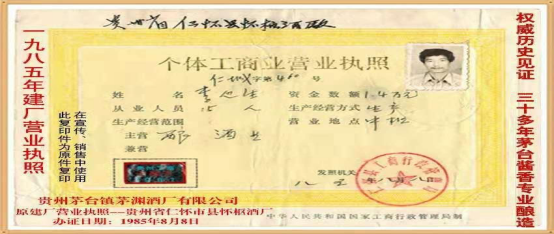 贵州省仁怀县怀枢酒厂
个体工商业营业执照
仁 字第4 0号
姓名 李
资金数额 1.4万元
从业人员 15人
生产经营方式 生产
生产经营范围
营业地点 中枢
主营 酒
兼营
发照机关
一九八五年建厂营业执照
在宣传、销售中使用
此复印件为原件复印
权威历史见证 三十多年茅台酱香专业酿造
贵州茅台镇茅渊酒厂有限公司
原建厂营业执照--贵州省仁怀市县怀枢酒厂
办证日期:1985年8月8日
中华人民共和国国家工商行政管理局制